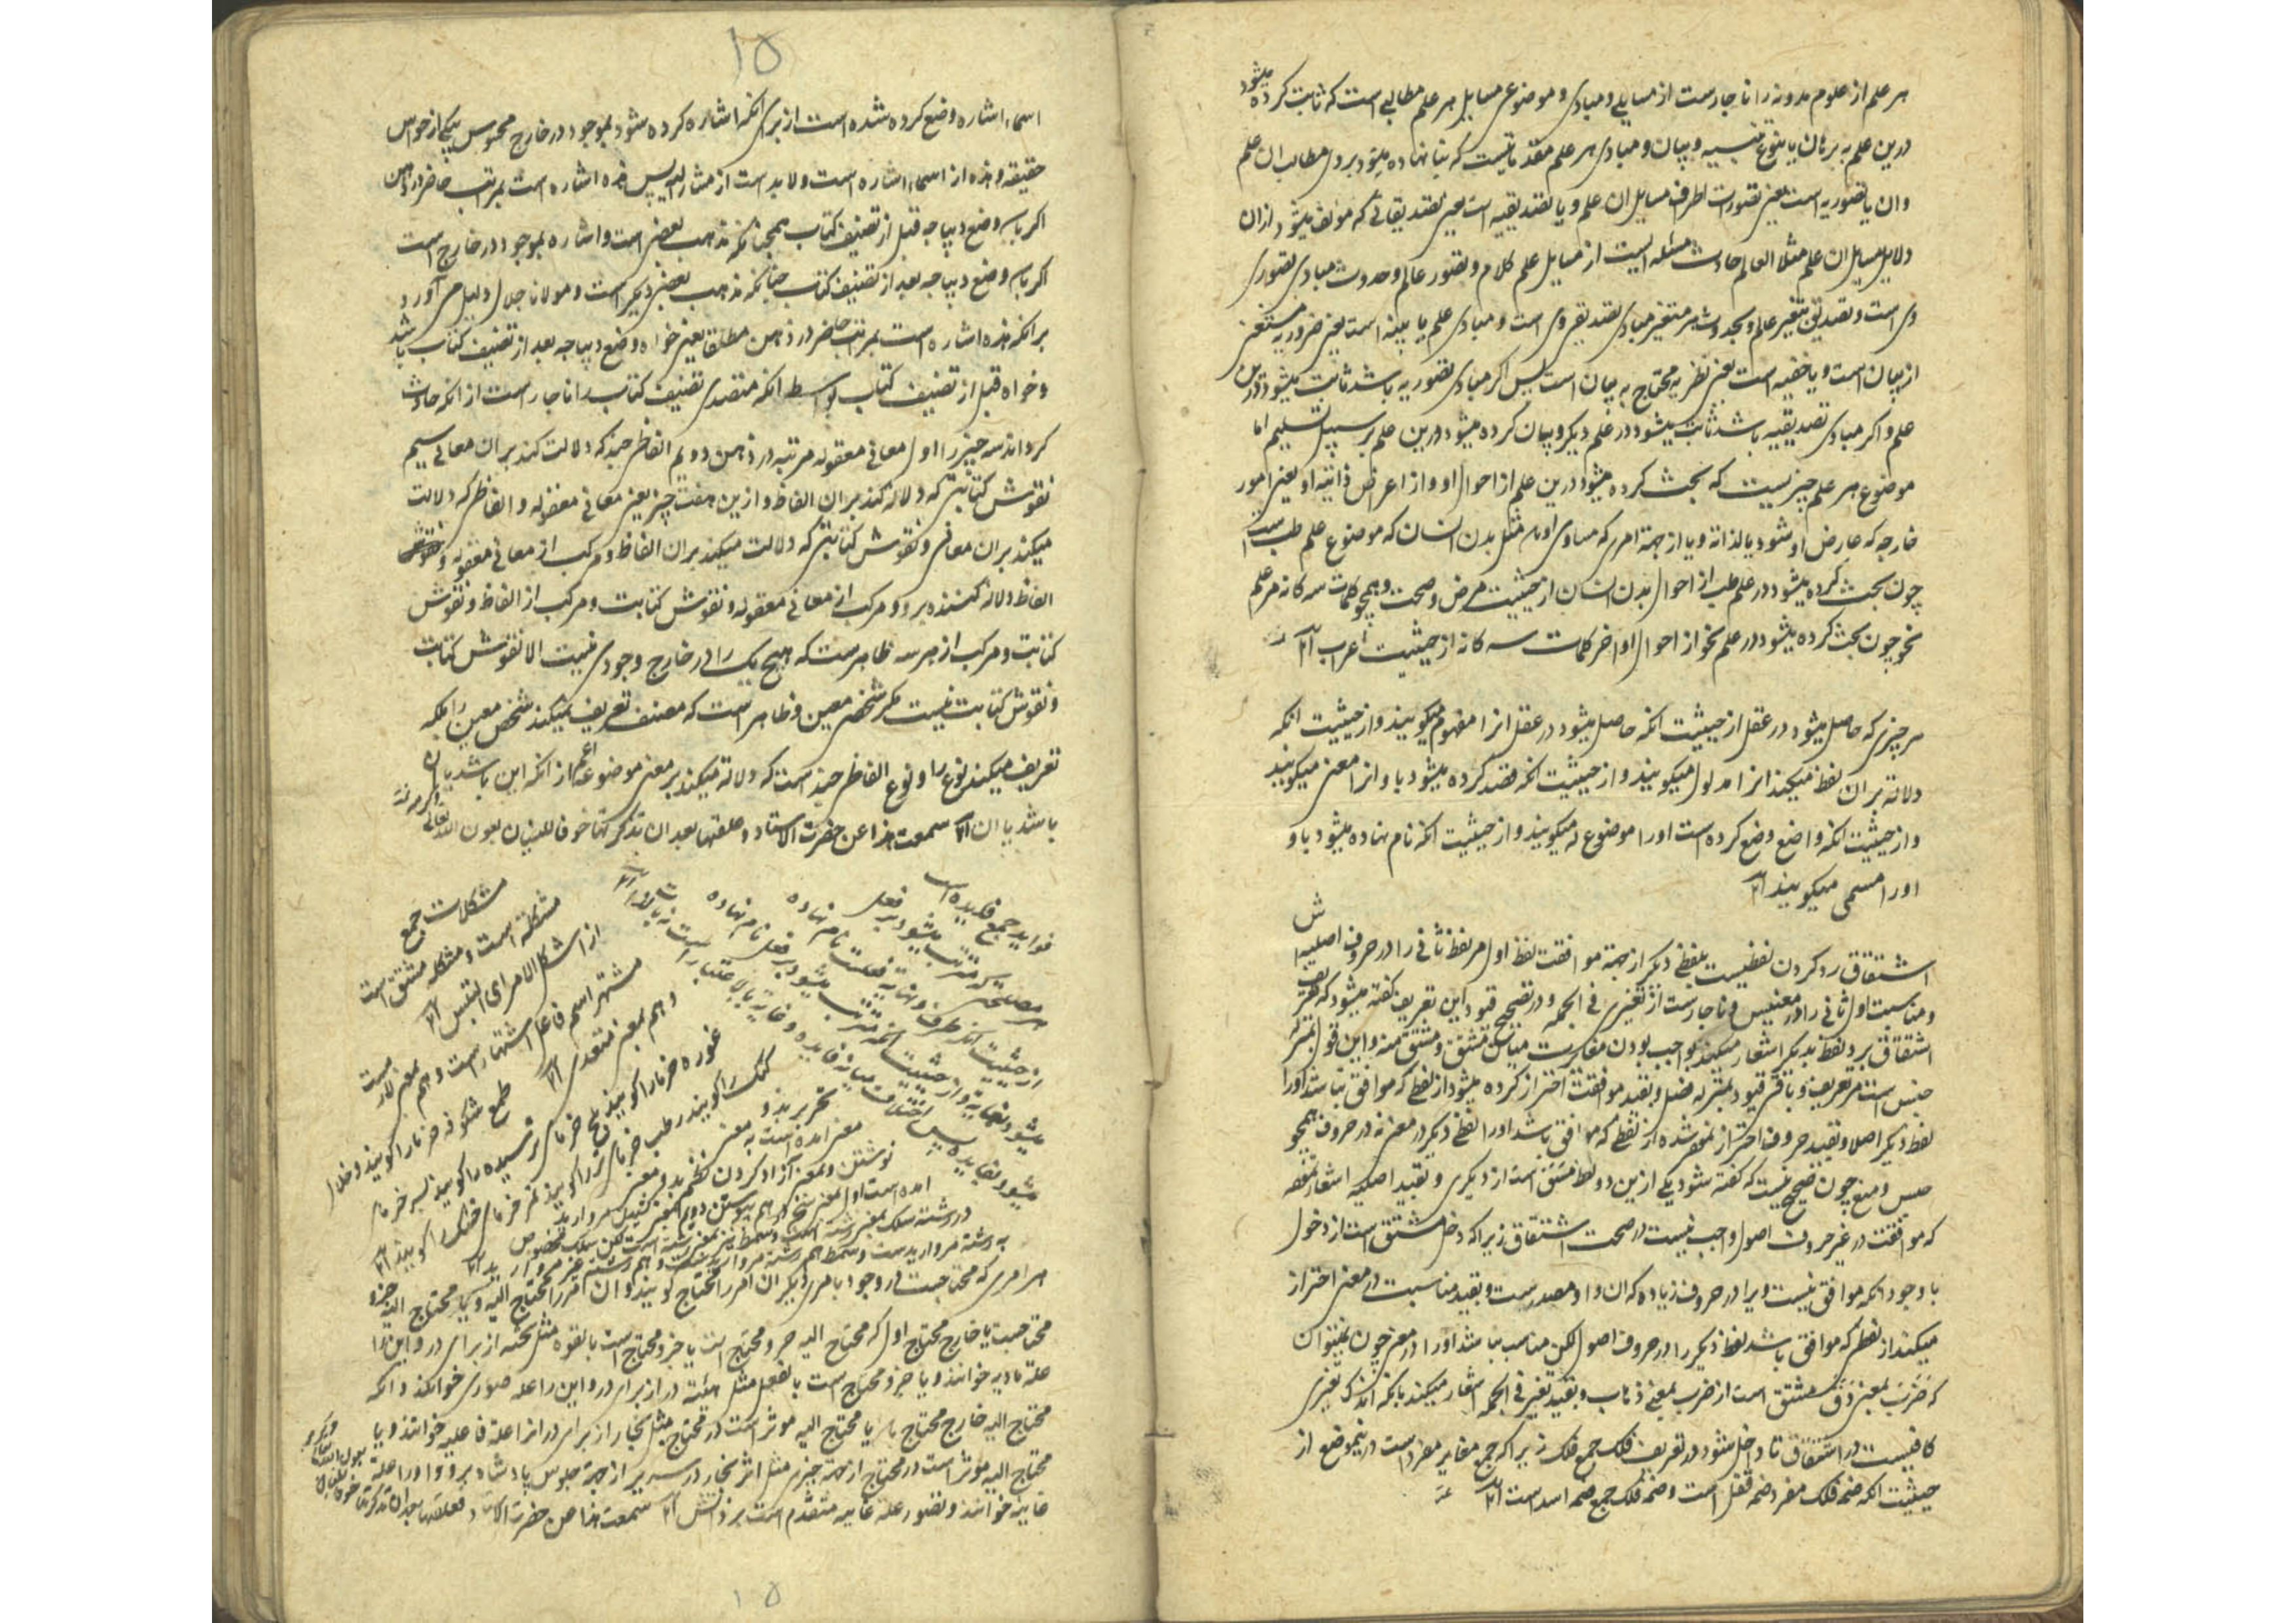 هر علم از علوم مدونه را ناچارست از مسایلی و مبادی و موضوع مسایل هر علم مطالبی است که ثابت کرده میشود
درین علم به برهان یا بنوع تنبیه و بیان و مبادی هر علم مقدماتیست که بنا نهاده میشود برو مطالب ان علم
و ان یا تصوریه است یعنی تصورات اطراف مسایل ان علم و یا تصدیقیه است یعنی تصدیقاتی که مولف میشود ازان
دلایل مسایل ان علم مثلا العالم حادث مسئله ایست از مسایل علم کلام و تصور عالم و حدوث مبادی تصوری
وی است و تصدیق بتغیر علم و بحدوث هر متغیر مبادی تصدیقی وی است و مبادی علم یا بینه است یعنی ضروریه مستغنی
از بیان است و یا خفیه است یعنی نظریه محتاج به بیان است پس اگر مبادی تصوریه باشد ثابت میشود درین
علم و اکر مبادی تصدیقیه باشد ثابت میشود در علم دیکر و بیان کرده میشود درین علم بر سبیل تسلیم اما
موضوع هر علم چیزیست که بحث کرده میشود درین علم از احوال او و از اعراض ذاتیه او یعنی امور
خارجه که عارض او شود یا لذاته و یا از جهة امری که مساوی او باشد مثل بدن انسان که موضوع علم طب است
چون بحث کرده میشود در علم طب از احوال بدن انسان از حیثیت مرض و صحت و همچو کلمات سه کانه مر علم
نحو چون بحث کرده میشود در علم نحو از احوال اواخر کلمات سه کانه از حیثیت اعراب
هر چیزی که حاصل میشود در عقل از حیثیت انکه حاصل میشود در عقل انرا مفهوم میکویند و از حیثیت انکه
دلالة بران لفظ میکند انرا مدلول میکویند و از حیثیت انکه قصد کرده میشود باو انرا معنی میکویند
و از حیثیت انکه واضع وضع کرده است اورا موضوع له میکویند و از حیثیت انکه نام نهاده میشود باو
اورا مسمی میکویند
اشتقاق رد کردن لفظیست بلفظی دیکر از جهة موافقت لفظ اول مر لفظ ثانی را در حروف اصلیه
و مناسبت اول ثانی را در معنی و ناچارست از تغییری فی الجمله و در توضیح قیود این تعریف کفته میشود که تعریف
اشتقاق برد لفظ بدیکر اشعار میکند بواجب بودن مغایرت میان مشتق و مشتق منه و این قول بمنزله
جنس است مر تعریف و باقی قیود بمنزله فصل و بقید موافقت احتراز کرده میشود از لفظی که موافق نباشد اورا
لفظ دیکر اصلا و بقید حروف احتراز نموده شده از لفظی که موافق باشد اورا لفظی دیکر در معنی نه در حروف همچو
حبس و منع چون صحیح نیست که کفته شود یکی ازین دو لفظ مشتق است از دیکری و بقید اصلیه اشعار نموده
که موافقت در غیر حروف اصول واجب نیست در صحت اشتقاق زیرا که دخل مشتق است از دخول
با وجود انکه موافق نیست ویرا در حروف زیاده که ان واو مصدرست و بقید مناسبت در معنی احتراز
میکند از لفظی که موافق باشد لفظ دیکر را در حروف اصول لکن مناسب نباشد اورا در معنی چون نمیتوان
که ضرب بمعنی دق مشتق است از ضرب بمعنی ذهاب و بقید تغییر فی الجمله اشعار میکند بانکه اندک تغییری
کافیست در اشتقاق تا داخل شود در تعریف فلک جمع فلک زیرا که جمع مغایر مفرد است درینموضع از
حیثیت انکه ضمه فلک مفرد ضمه قفل است و ضمه فلک جمع ضمه اسد است
١٥
اسماء اشاره وضع کرده شده است از برای انکه اشاره کرده شود بموجود در خارج محسوس بیکی از حواس
حقیقه و هذه از اسماء اشاره است و لابد است از مشار الیه پس هذه اشاره است بمرتب حاضر در ذهن
اکر باشد وضع دیباجه قبل از تصنیف کتاب همچنانکه مذهب بعضی است و اشاره بموجود در خارج است
اکر باشد وضع دیباجه بعد از تصنیف کتاب چنانکه مذهب بعضی دیکر است و مولانا جلال دلیل می آورد
برانکه هذه اشاره است بمرتب حاضر در ذهن مطلقا یعنی خواه وضع دیباجه بعد از تصنیف کتاب باشد
و خواه قبل از تصنیف کتاب بواسطه انکه متصدی تصنیف کتاب را ناچار است از انکه حادث
کرداند سه چیز را اول معانی معقوله مرتبه در ذهن دویم الفاظی چند که دلالت کند بران معانی سیم
نقوش کتابتی که دلالة کند بران الفاظ و ازین هفت چیز یعنی معانی معقوله و الفاظی که دلالت
میکند بران معانی و نقوش کتابتی که دلالت میکند بران الفاظ و مرکب از معانی معقوله و
الفاظ دلالة کننده برو و مرکب از معانی معقوله و نقوش کتابت و مرکب از الفاظ و نقوش
کتابت و مرکب از هر سه ظاهرست که هیچ یک را در خارج وجودی نیست الا نقوش کتابت
و نقوش کتابت نیست مکر شخصی معین و ظاهر است که مصنف تعریف نمیکند شخص معین را بلکه
تعریف میکند نوع را و نوع الفاظی چند است که دلالة میکند بر معنی موضوعه اعم از انکه این باشد یا ان
باشد یا ان سمعت هذا عن حضرت الاستاد و علقتها بعد ان تذکرتها خوفا للنسیان بعون الله تعالی
فواید جمع فایده است
هر مصلحتی که مترتب میشود بر فعل
از حیثیت انکه طرف و نهایة فعلست نام نهاده
میشود بغایة و از حیثیت انکه مترتب میشود بر فعل نام نهاده
میشود بفایده پس اختلاف میانه فایده و غایة باعتبار است نه بالذات
مشکلات جمع
مشکله است و مشکله مشتق است
از اشکل الامر ای التبس
مشتهر اسم فاعل اشتهار است و هم بمعنی لازمست
و هم بمعنی متعدی
طلع شکوفه خرما را کویند و خلال
غوره خرما را کویند بلح خرمای نرسیده را کویند بسر خرمای
را کویند رطب خرمای تر را کویند تمر خرمای خشک را کویند
تحریر بدو
معنی امده است به معنی
نوشتن و بمعنی آزاد کردن نظم بدو معنی
امده است اول بمعنی
هر امری که محتاجست در وجود بامری دیکر ان امر را محتاج کویند و ان امر را محتاج الیه و محتاج الیه جزو
محتاجست یا خارج محتاج اول که محتاج الیه جزو محتاج است یا جزو محتاج است بالقوه مثل تخته از برای در و این را
علة مادیه خوانند و یا جزو محتاج است بالفعل مثل هیئة در از برای در و این را علة صوری خوانند و انکه
محتاج الیه خارج محتاج باشد یا محتاج الیه موثر است در محتاج مثل نجار از برای در انرا علة فاعلیه خوانند و یا
محتاج الیه موثر است در محتاج از جهة چیزی مثل اثر نجار در سریر از جهة جلوس پادشاه برو و اورا علة
غاییه خوانند و تصور علة غاییه متقدم است بر ذاتش سمعت هذا من حضرت الاستاد فعلقتها بعد ان تذکرتها خوفا للنسیان
١٥